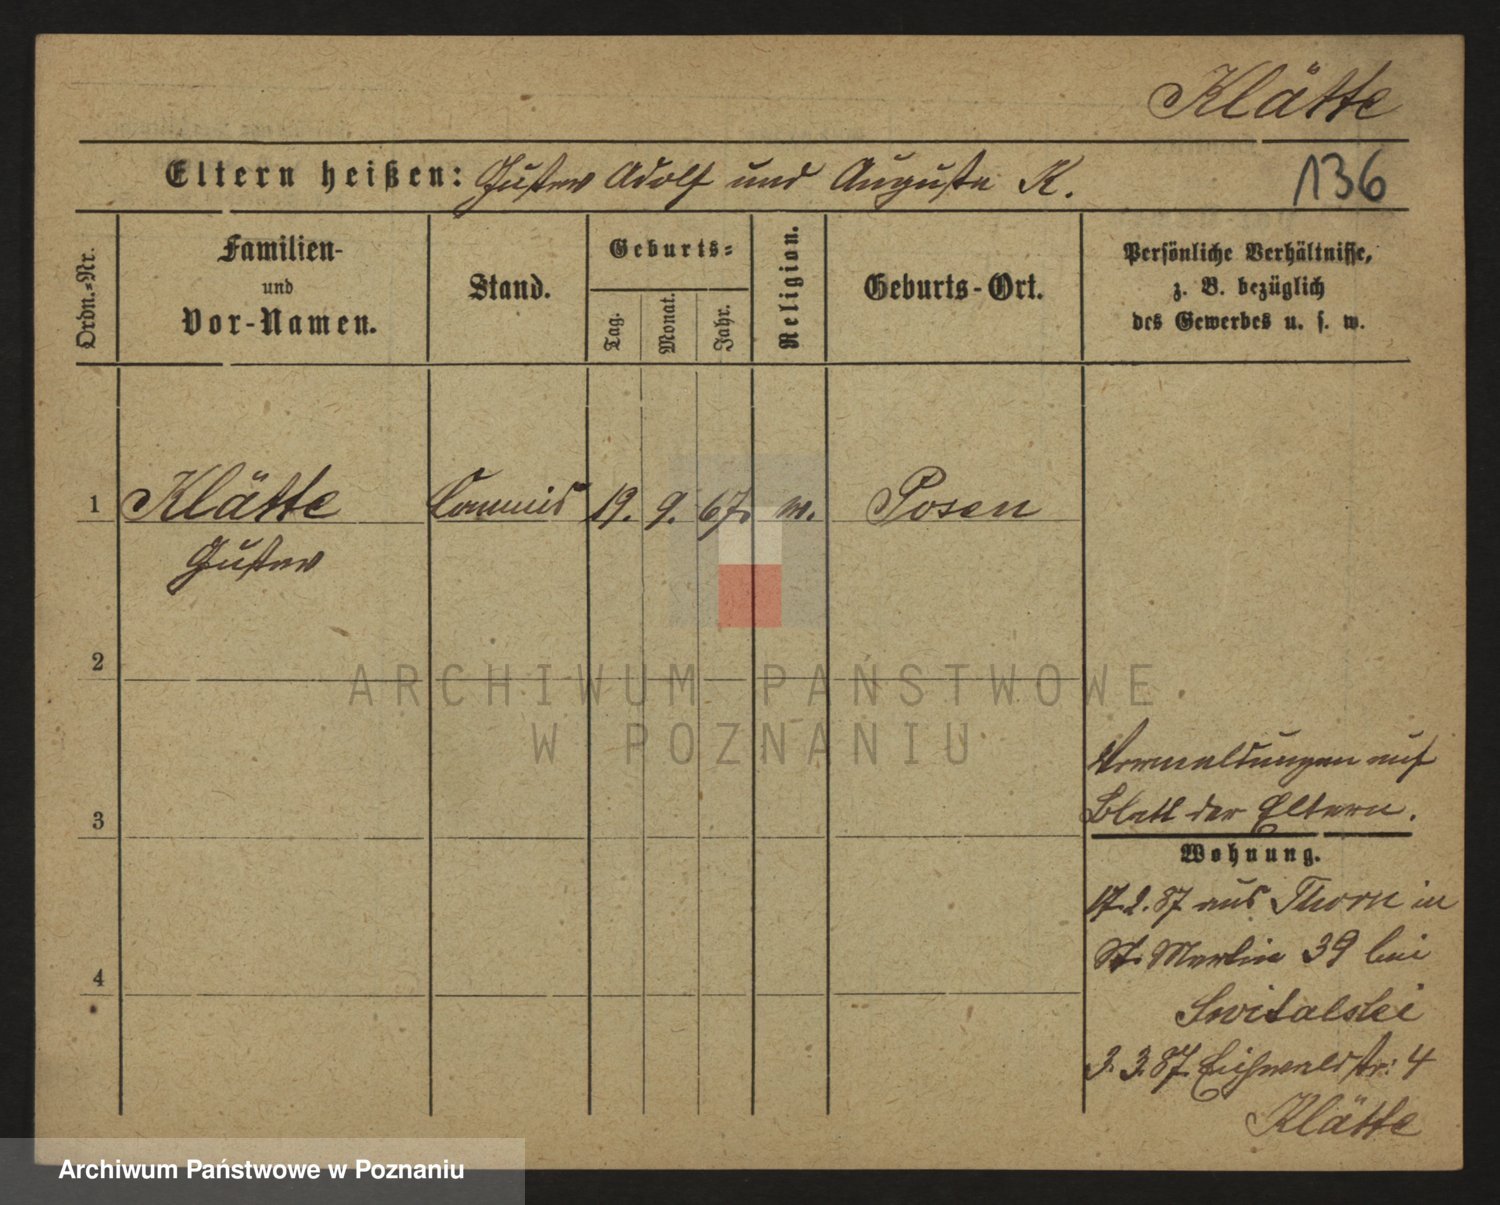 Klätte
136
Eltern heißen: Gustav Adolf und Auguste K.
Ordn.-Nr.
Familien-
und
Vor-Namen.
Stand.
Geburts-
Tag.
Monat.
Jahr.
Religion.
Geburts-Ort.
Persönliche Verhältnisse,
z. B. bezüglich
des Gewerbes u. s. w.
1 Klätte Commis 19. 9. 67. Posen
Gustav
2
3
4
Vermeldungen auf
Blatt der Eltern.
Wohnung.
17.2.87 aus Thorn in
St. Martin 39 bei
Switalski
3.3.87 Eichwaldstr: 4
Klätte
ARCHIWUM PAŃSTWOWE
W POZNANIU
Archiwum Państwowe w Poznaniu